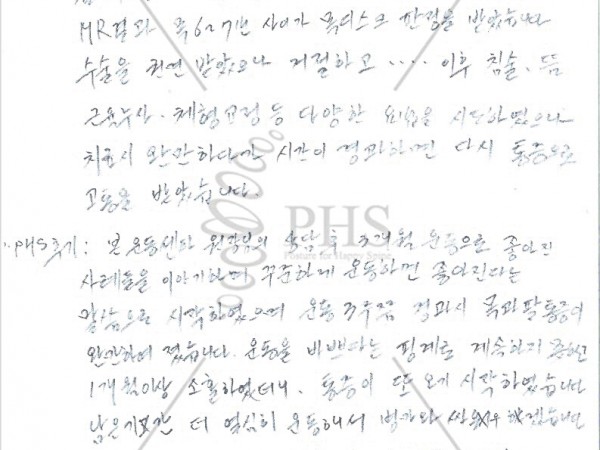 MRI결과 목6~7번 사이가 목디스크 판정을 받았습니다
수술을 권면 받았으나 거절하고 .... 이후 침술. 뜸
근육주사. 체형교정 등 다양한 요법을 시도하였으나
치료시 완만하다가 시간이 경과하면 다시 통증으로
고통을 받았습니다.
PHS
Posture for Happy Spine
PHS후기 : 본 운동센타 원장님의 상담 후 3개월 운동으로 좋아진
사례들을 이야기하며 꾸준하게 운동하면 좋아진다는
말씀으로 시작하였으며 운동 3주쯤 경과시 목과 팔 통증이
완만하여 졌습니다. 운동을 바쁘다는 핑계로 계속하지 못하고
1개월이상 소홀하였더니. 통증이 또 오기 시작하였습니다
남은기간 더 열심히 운동해서 병마와 싸워 하겠습니다